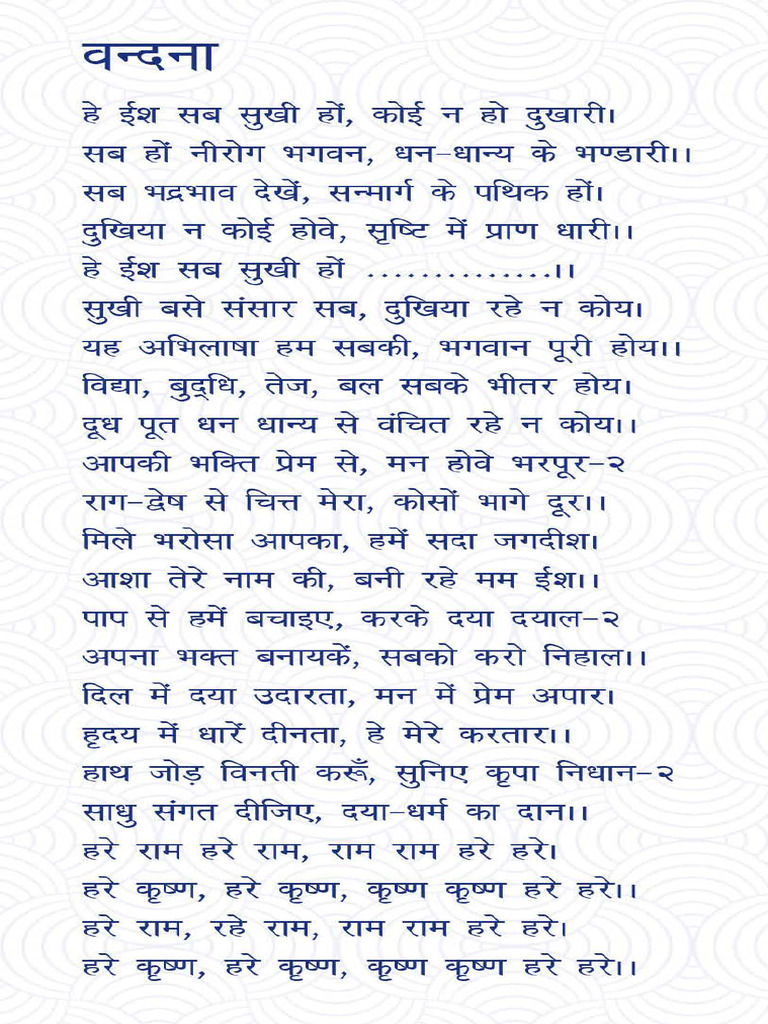 वन्दना
हे ईश सब सुखी हों, कोई न हो दुखारी।
सब हों नीरोग भगवन, धन-धान्य के भण्डारी।।
सब भद्रभाव देखें, सन्मार्ग के पथिक हों।
दुखिया न कोई होवे, सृष्टि में प्राण धारी।।
हे ईश सब सुखी हों ..............।।
सुखी बसे संसार सब, दुखिया रहे न कोय।
यह अभिलाषा हम सबकी, भगवान पूरी होय।।
विद्या, बुद्धि, तेज, बल सबके भीतर होय।
दूध पूत धन धान्य से वंचित रहे न कोय।।
आपकी भक्ति प्रेम से, मन होवे भरपूर-२
राग-द्वेष से चित्त मेरा, कोसों भागे दूर।।
मिले भरोसा आपका, हमें सदा जगदीश।
आशा तेरे नाम की, बनी रहे मम ईश।।
पाप से हमें बचाइए, करके दया दयाल-२
अपना भक्त बनायकें, सबको करो निहाल।।
दिल में दया उदारता, मन में प्रेम अपार।
हृदय में धारें दीनता, हे मेरे करतार।।
हाथ जोड़ विनती करूँ, सुनिए कृपा निधान-२
साधु संगत दीजिए, दया-धर्म का दान।।
हरे राम हरे राम, राम राम हरे हरे।
हरे कृष्ण, हरे कृष्ण, कृष्ण कृष्ण हरे हरे।।
हरे राम, रहे राम, राम राम हरे हरे।
हरे कृष्ण, हरे कृष्ण, कृष्ण कृष्ण हरे हरे।।